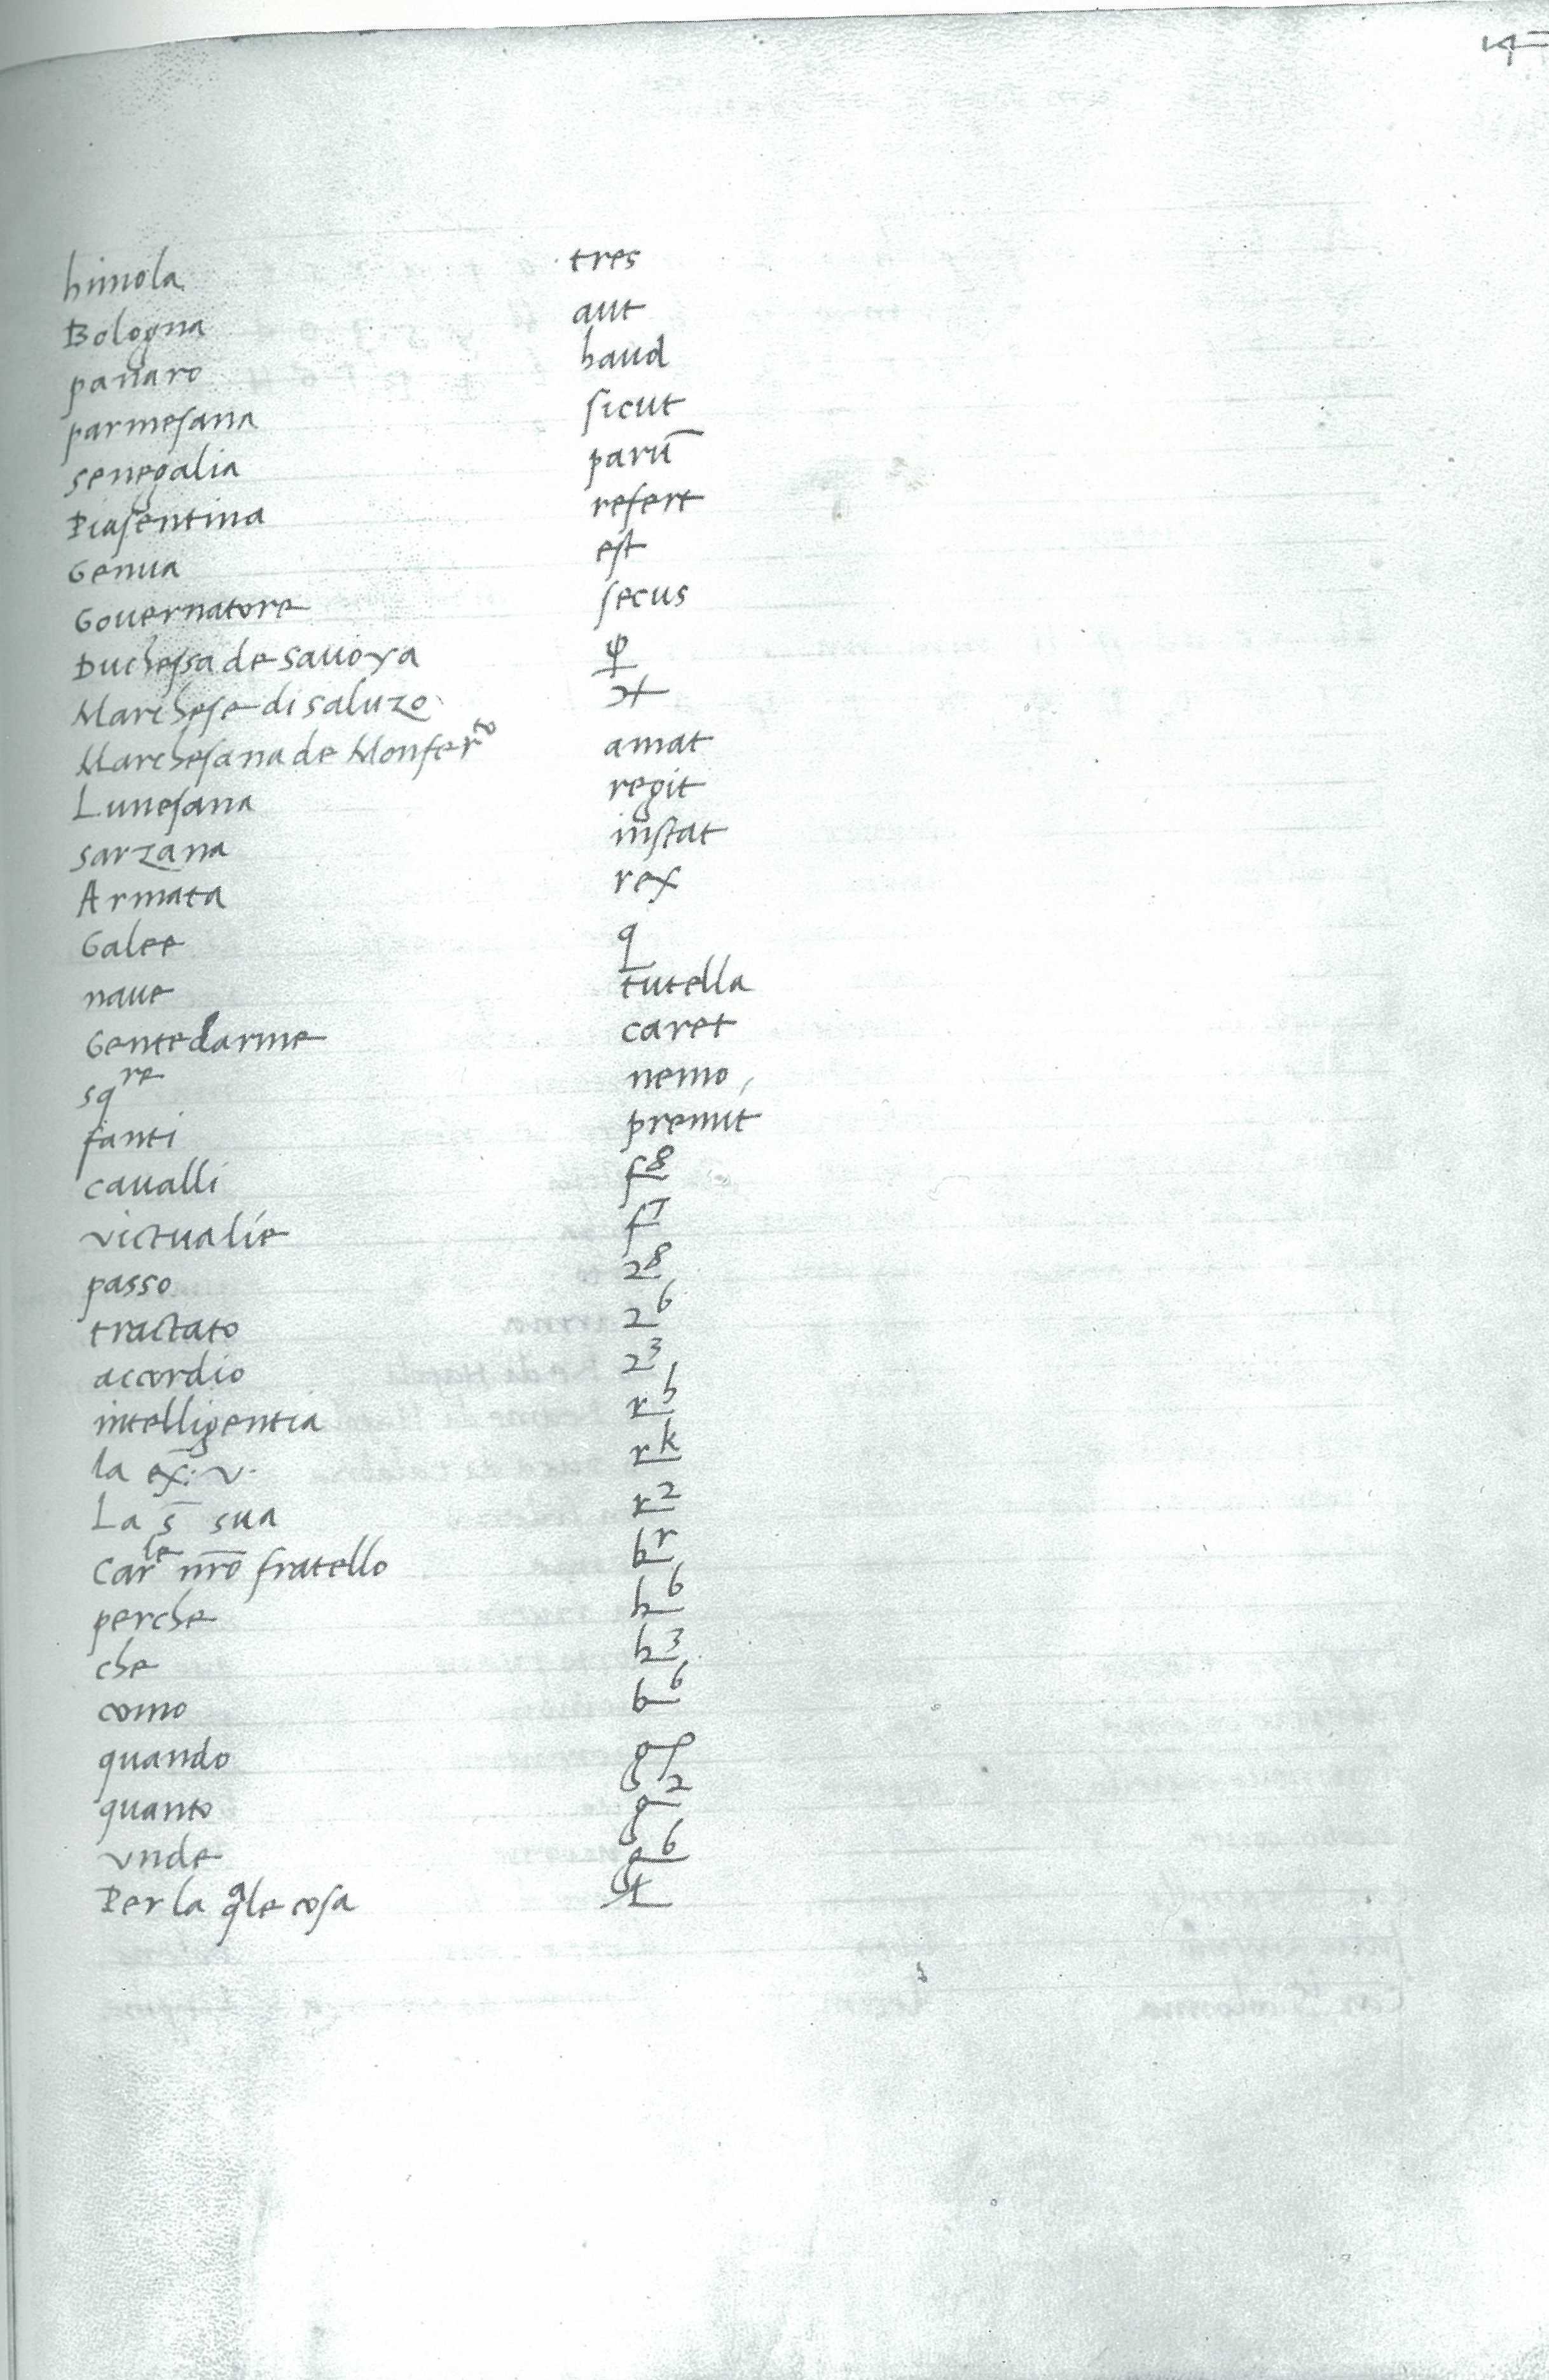 47
himola tres
Bologna aut
panaro haud
parmesana sicut
senegalia parū
Piasentina refert
Genua est
Gouernatore secus
Duchessa de sauoya ψ
Marchese di saluzo
Marchesana de Monferto amat
Lunesana regit
sarzana instat
Armata rex
Galee q
naue tutella
Gente darme caret
sqre nemo
fanti premit
caualli f8
victualie f
passo 28
tractato 26
acordio 23
intelligentia rh
la ex. v. rk
La s̄ sua r2
Carle nr̄o fratello hr
perche h6
che h3
como b6
quando gp
quanto g2
vnde g6
Per la qale cosa